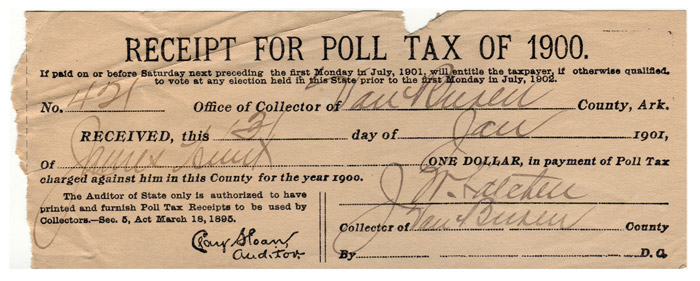 RECEIPT FOR POLL TAX OF 1900.
If paid on or before Saturday next preceding the first Monday in July, 1901, will entitle the taxpayer, if otherwise qualified,
to vote at any election held in this State prior to the first Monday in July, 1902.
No. 431 Office of Collector of Van Buren County, Ark.
RECEIVED, this 31 day of Jan 1901,
Of James ONE DOLLAR, in payment of Poll Tax
charged against him in this County for the year 1900.
The Auditor of State only is authorized to have
printed and furnish Poll Tax Receipts to be used by
Collectors.—Sec. 5, Act March 18, 1895.
Sloan,
Auditor.
J. W.
Collector of Van Buren County
By D. C.